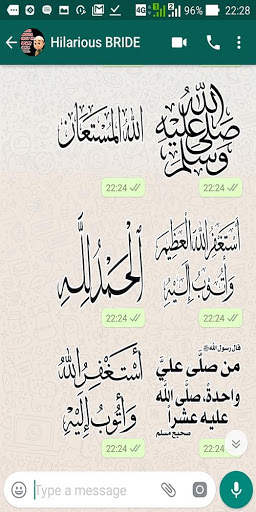 4G 1 2 96% 22:28
Hilarious BRIDE
الله المستعان
22:24
صلى الله عليه وسلم
22:24
الحمد لله
22:24
أستغفر الله العظيم
وأتوب إليه
22:24
أستغفر الله
وأتوب إليه
22:24
قال رسول الله ﷺ
من صلَّى عليَّ
واحدةً، صلَّى الله
عليه عشراً
صحيح مسلم
22:24
Type a message